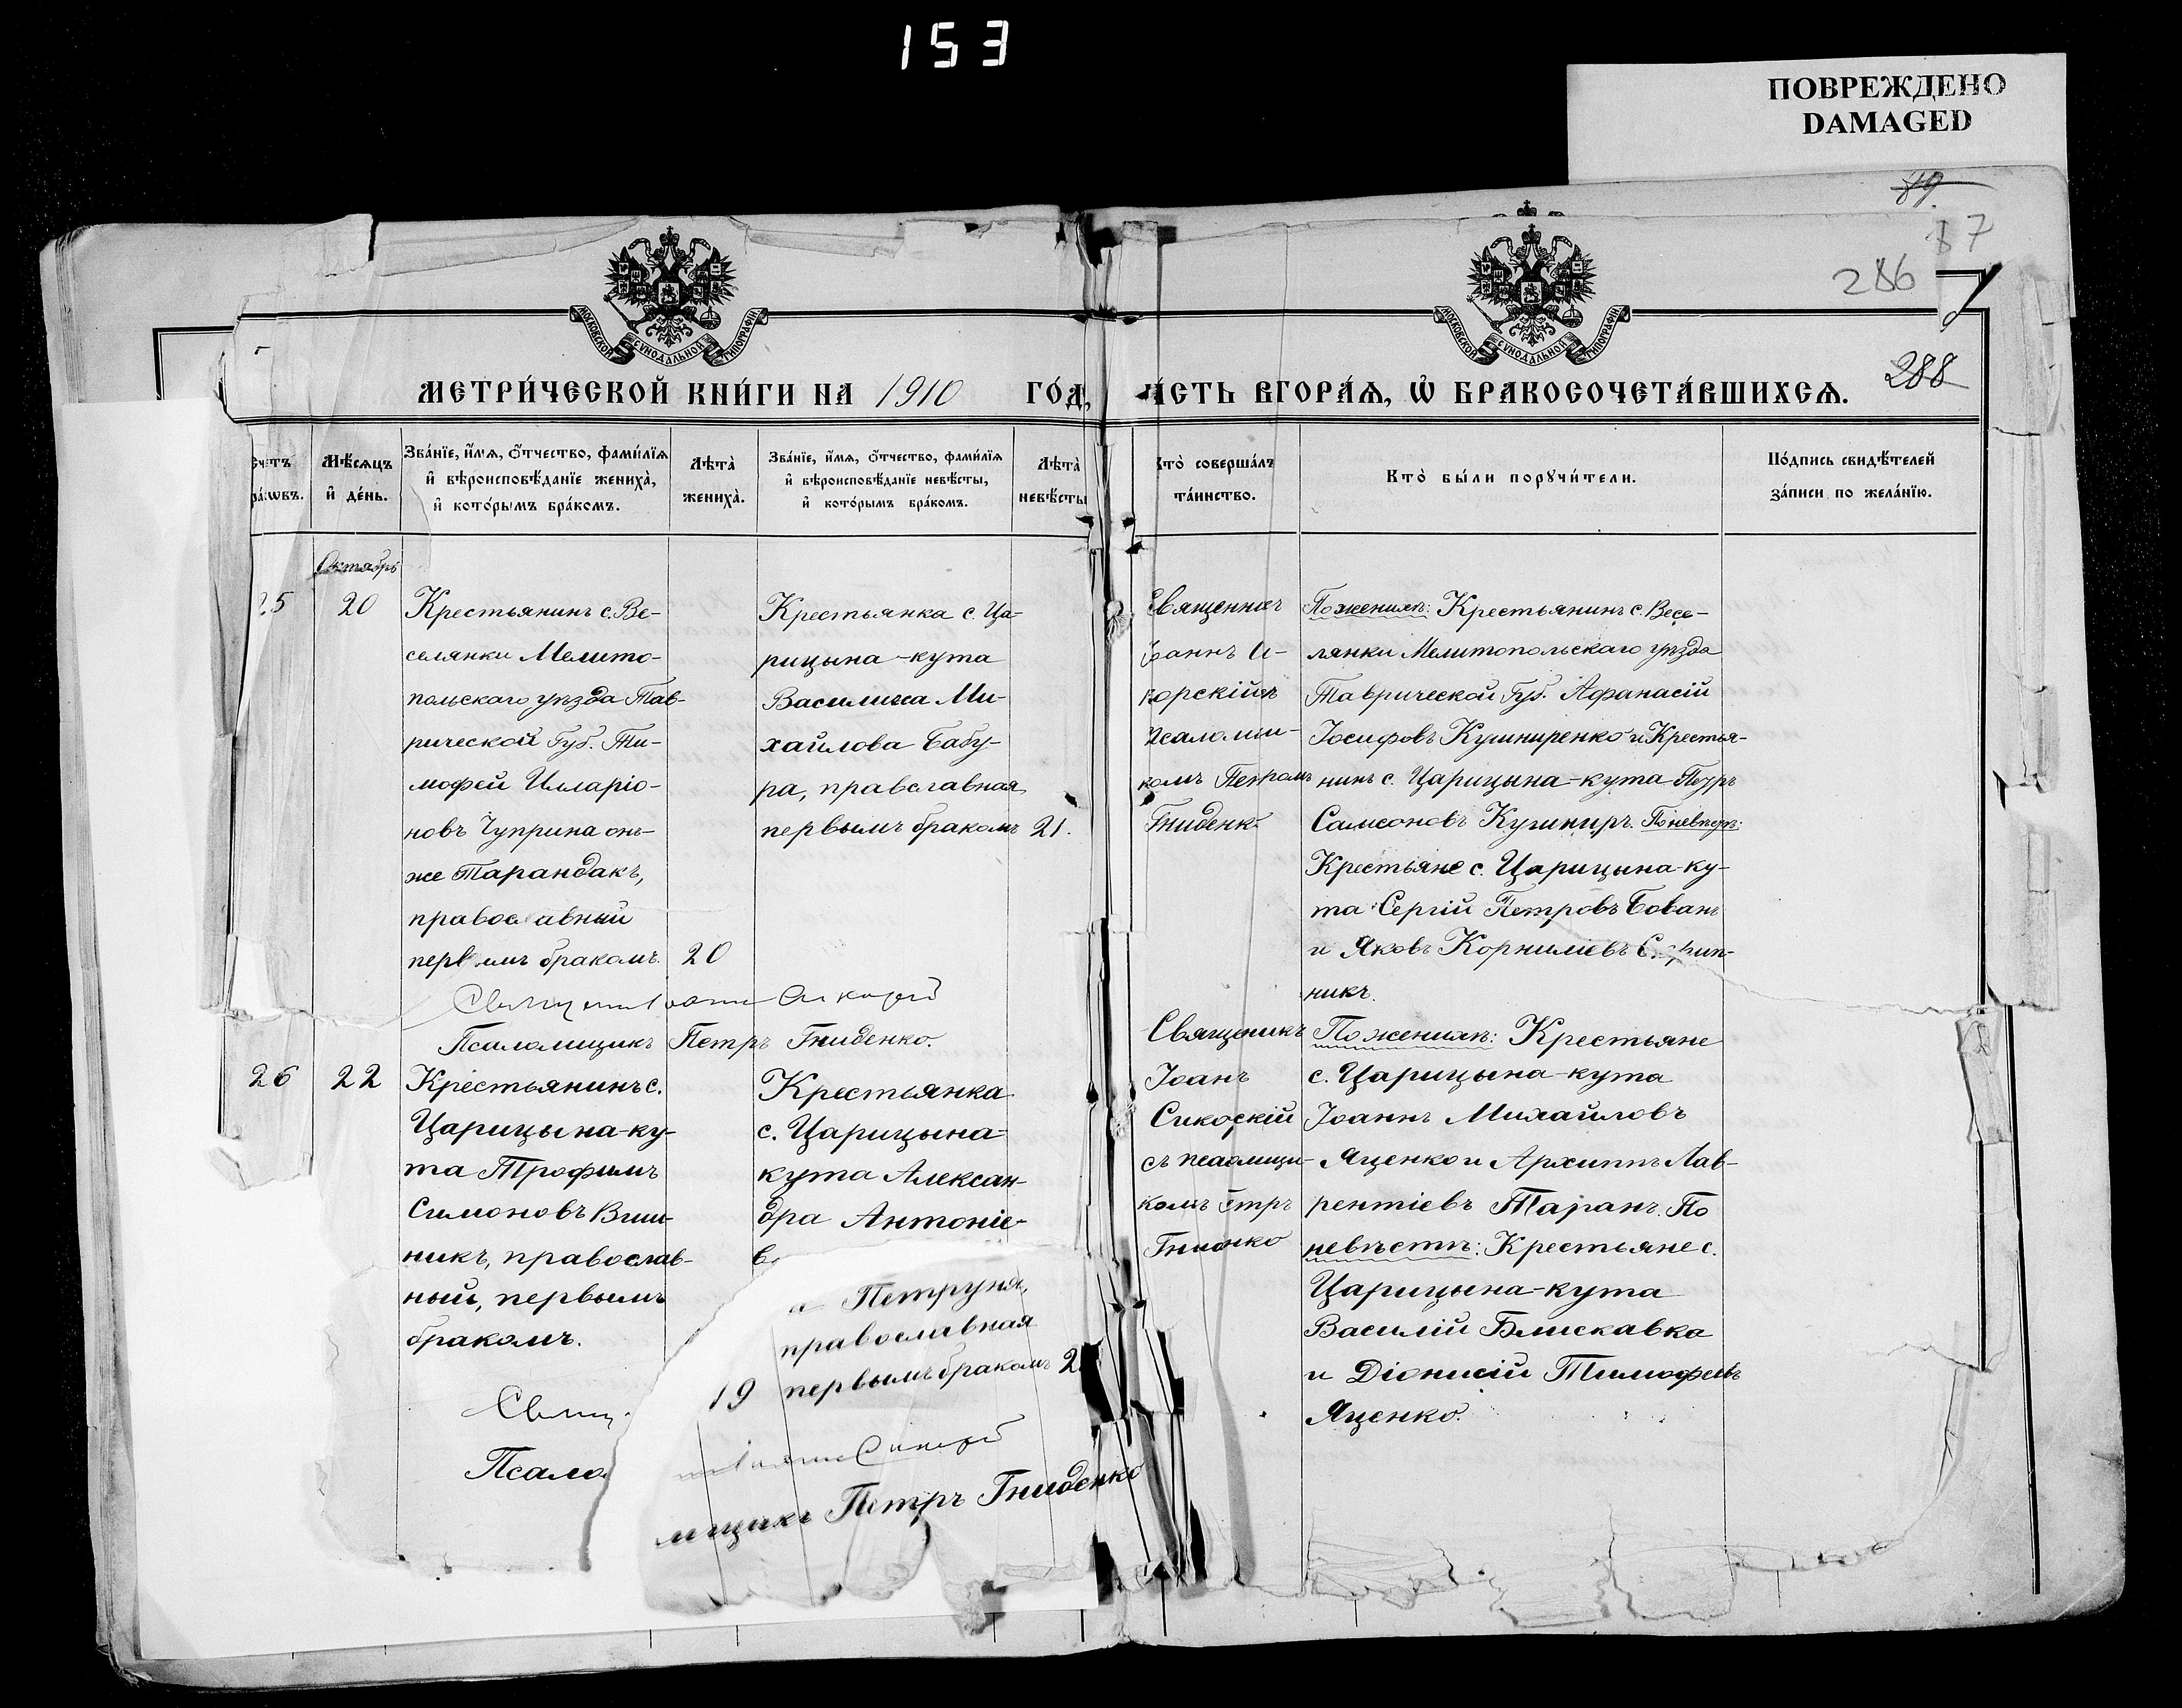 153
ПОВРЕЖДЕНО
DAMAGED
89.
87
286
288
МОСКОВСКОЙ СѴНОДАЛЬНОЙ ТИПОГРАФІИ
МОСКОВСКОЙ СѴНОДАЛЬНОЙ ТИПОГРАФІИ
МЕТРИ́ЧЕСКОЙ КНИ́ГИ НА 1910 ГО́Д, ЧАСТЬ ВТОРА́Я, Ѡ БРАКОСОЧЕТА́ВШИХСЯ.
Мѣ́сяцъ
и҆ де́нь.
Зва́нїе, и҆́мя, ѻ҆́тчество, фами́лїя
и҆ вѣроисповѣ́данїе жениха̀,
и҆ кото́рымъ бра́комъ.
Лѣта̀
жениха̀.
Зва́нїе, и҆́мя, ѻ҆́тчество, фами́лїя
и҆ вѣроисповѣ́данїе невѣ́сты,
и҆ кото́рымъ бра́комъ.
Лѣта̀
невѣ́сты
Кто̀ соверша́лъ
та́инство.
Кто̀ бы́ли порꙋчи́тели.
По́дпись свидѣ́телей
за́писи по жела́нїю.
Октябрь
25
20
Крестьянинъ с. Ве-
селянки Мелито-
польскаго уѣзда Тав-
рической Губ. Ти-
мофей Илларіо-
новъ Чуприна онъ-
же Тарандакъ,
православный
первымъ бракомъ.
20
Крестьянка с. Ца-
рицына-кута
Василиса Ми-
хайлова Бабу-
ра, православная
первымъ бракомъ
21.
Іоаннъ
Петромъ
Гниденк
По женихѣ: Крестьянинъ с. Весе-
лянки Мелитопольскаго уѣзда
Таврической Губ. Афанасій
Іосифовъ Кушниренко и Крестья-
нинъ с. Царицына-кута Петръ
Самсоновъ Кушниръ. По невѣстѣ:
Крестьяне с. Царицына-ку-
та Сергій Петровъ Бован
и Яковъ Корниліевъ Скрип-
никъ.
Псаломщикъ Петръ Гниденко.
26
22
Крестьянинъ с.
Царицына-ку-
та Трофимъ
Симоновъ Виш-
никъ, православ-
ный, первымъ
бракомъ.
19
Крестьянка
с. Царицына-
кута Алексан-
дра Антоніе-
ва Петруня,
православная
первымъ бракомъ
2
Священикъ
Іоанъ
Сикорскій
съ псаломщи-
комъ Петръ
По женихѣ: Крестьяне
с. Царицына-кута
Іоаннъ Михайловъ
Яценко и Архиппъ Лав-
рентіевъ Таранъ. По
невѣстѣ: Крестьяне с.
Царицына-кута
Василій Блискавка
и Діонисій Тимофеевъ
Яценко.
Псаломщикъ Петръ Гниденко